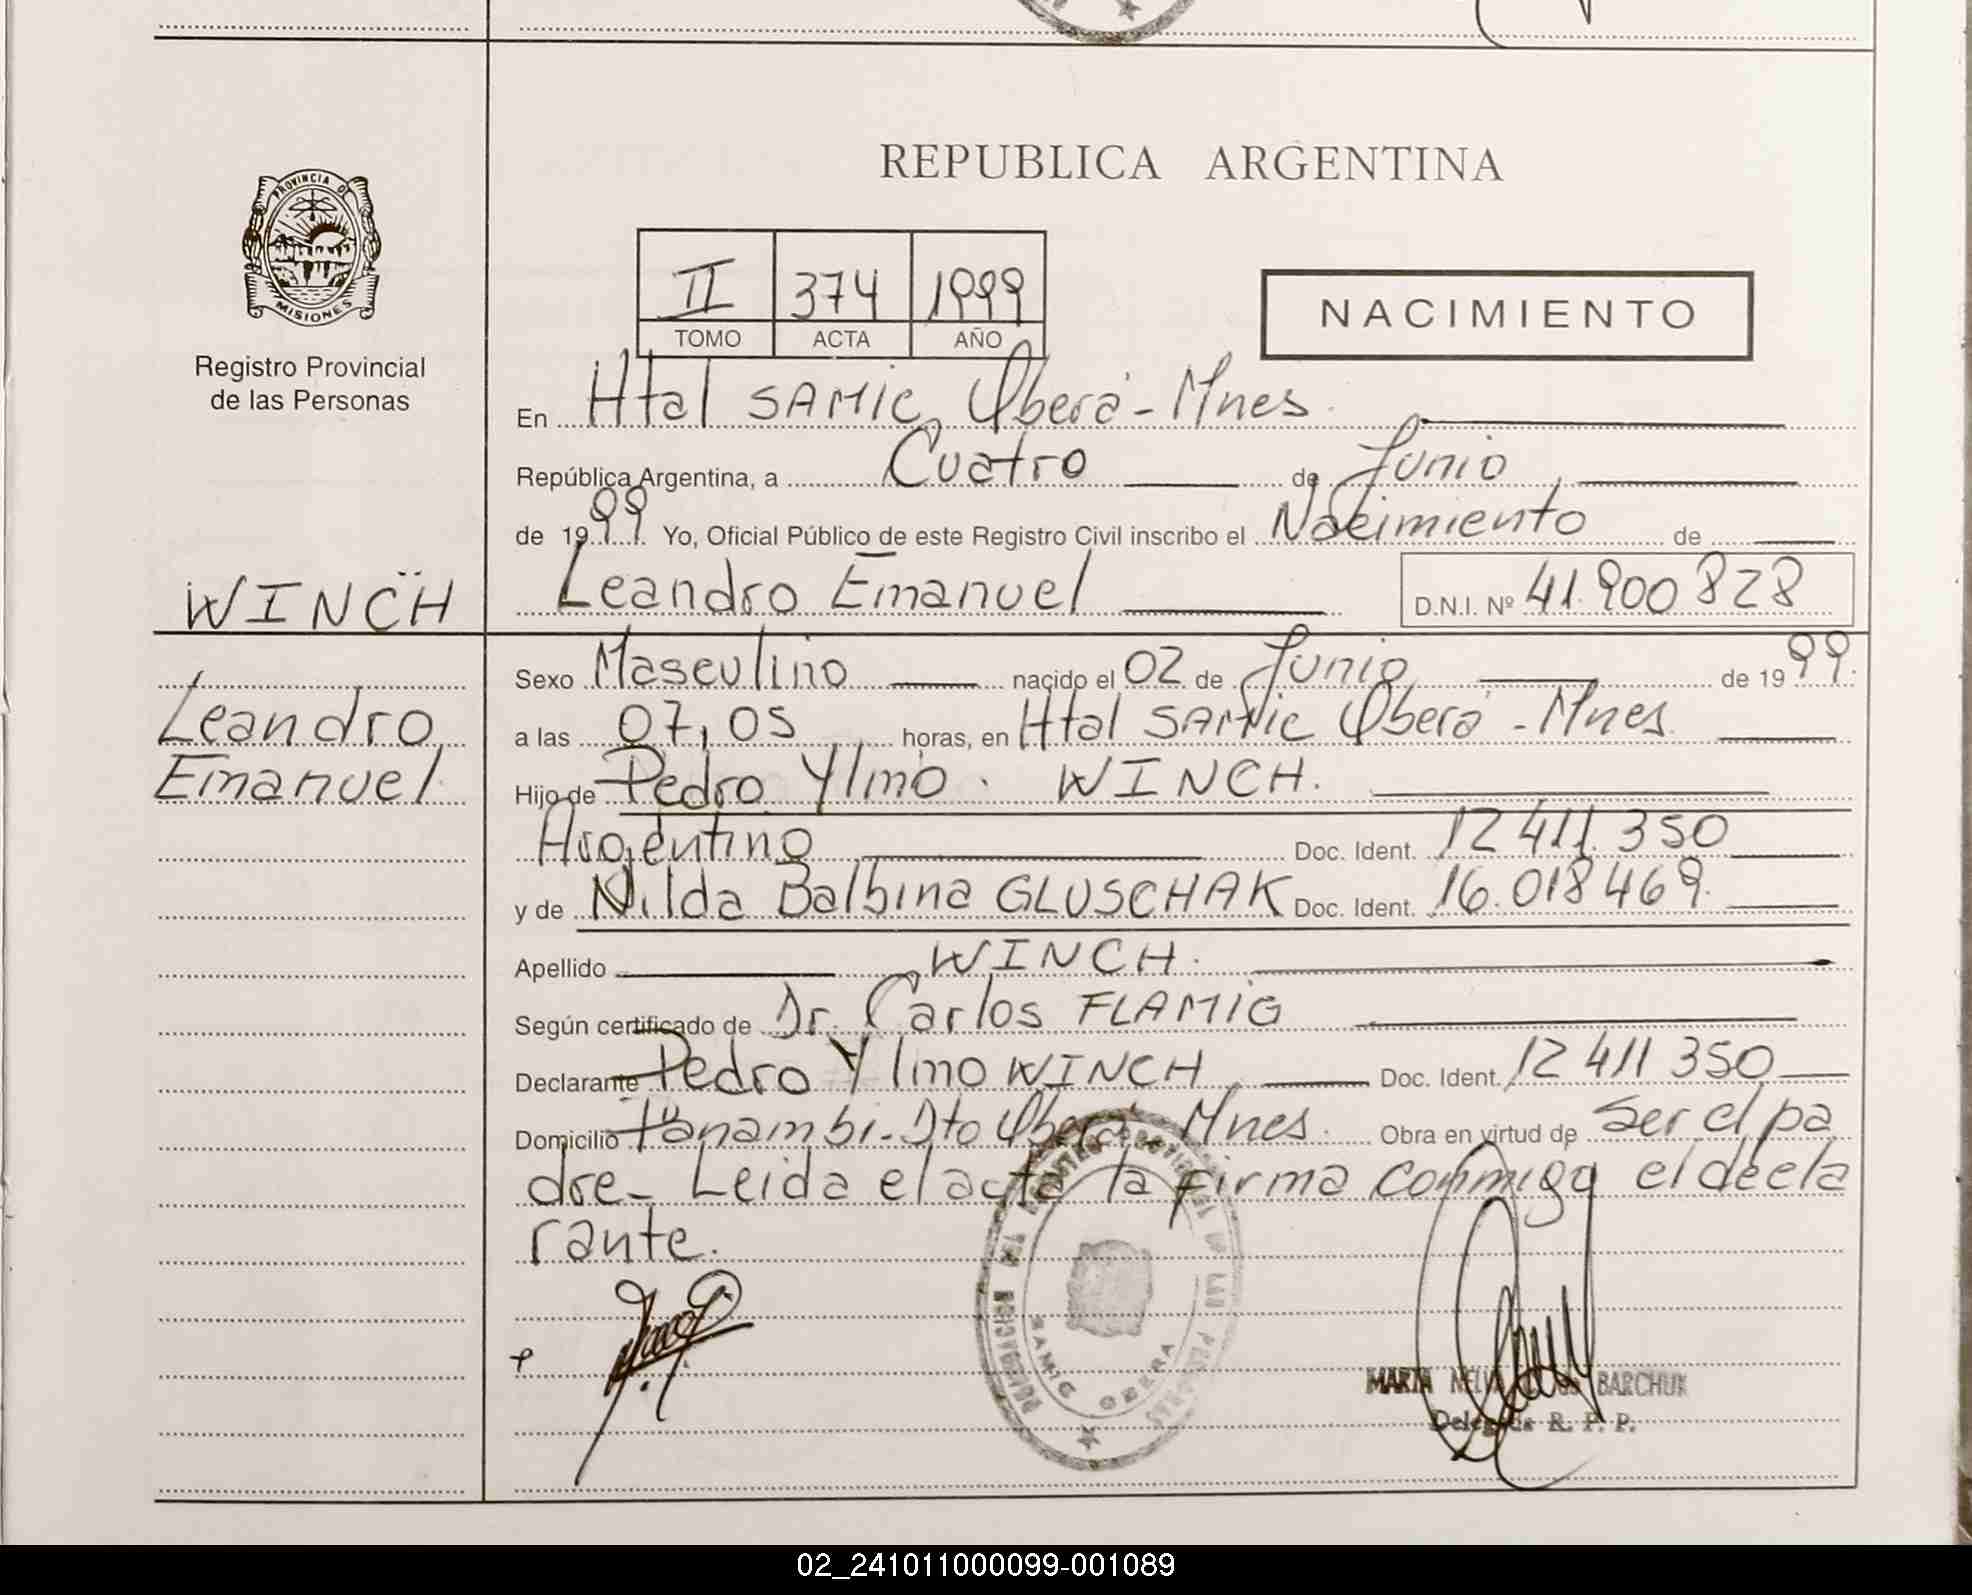 REPUBLICA ARGENTINA
PROVINCIA DE
MISIONES
Registro Provincial
de las Personas
II 374 1999
TOMO ACTA AÑO
NACIMIENTO
En Htal SAMIC Oberá - Mnes.
República Argentina, a Cuatro de Junio
de 1999 Yo, Oficial Público de este Registro Civil inscribo el Nacimiento de
WINCH
Leandro Emanuel D.N.I. Nº 41.900828
Sexo Masculino nacido el 02 de Junio de 1999.
Leandro
Emanuel.
a las 07,05 horas, en Htal SAMIC Oberá - Mnes.
Hijo de Pedro Ylmo. WINCH.
Argentino Doc. Ident. 12 411.350
y de Nilda Balbina GLUSCHAK Doc. Ident. 16.018469.
Apellido WINCH.
Según certificado de Dr. Carlos FLAMIG
Declarante Pedro Ylmo WINCH Doc. Ident. 12 411 350
Domicilio Panambi - Dto Oberá - Mnes. Obra en virtud de ser el pa
dre - Leida el acta la firma conmigo el decla
rante.
SAMIC OBERA
MARTA BARCHUK
Delegada R. P. P.
02_241011000099-001089